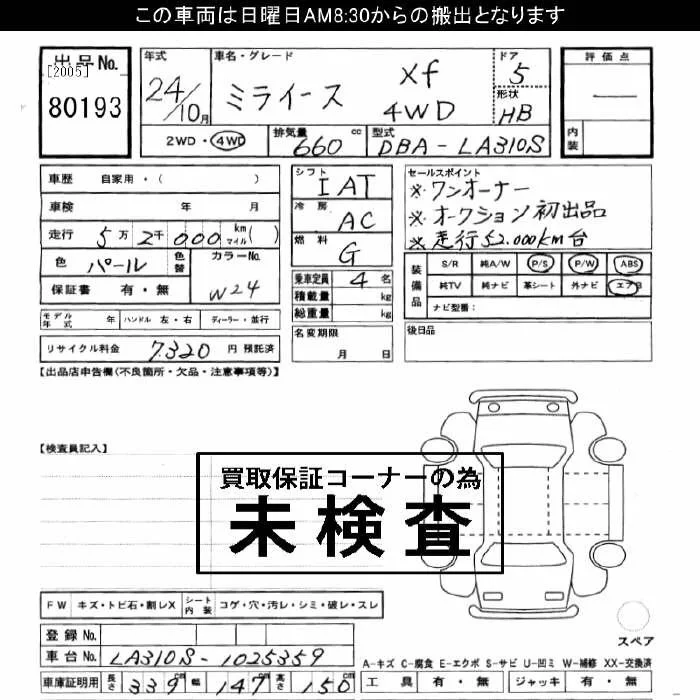 この車両は日曜日AM8:30からの搬出となります
出品No. [2005] 80193
年式 24/10月
車名・グレード ミライース Xf 4WD
ドア 5
形状 HB
評価点 —
内装
2WD・4WD 排気量 660 cc 型式 DBA-LA310S
車歴 自家用・( )
車検 年 月
走行 5万2千000 km マイル ( )
色 パール 色替 カラーNo. W24
保証書 有・無
シフト IAT
冷房 AC
燃料 G
乗車定員 4名
積載量 kg
総重量 kg
セールスポイント
※ワンオーナー
※オークション初出品
※走行52,000KM台
装備品 S/R 純A/W P/S P/W ABS
純TV 純ナビ 革シート 外ナビ エアB
ナビ型番:
モデル年式 年 ハンドル 左・右 ディーラー・並行
名変期限 月 日
後日品
リサイクル料金 7320 円 預託済
【出品店申告欄(不良箇所・欠品・注意事項等)】
【検査員記入】
買取保証コーナーの為
未検査
FW キズ・トビ石・割レX シート内装 コゲ・穴・汚レ・シミ・破レ・スレ
登録No.
車台No. LA310S-1025359
スペア
A-キズ C-腐食 E-エクボ S-サビ U-凹ミ W-補修 XX-交換済
車庫証明用 長さ 339 cm 幅 147 cm 高さ 150 cm
工具 有・無 ジャッキ 有・無